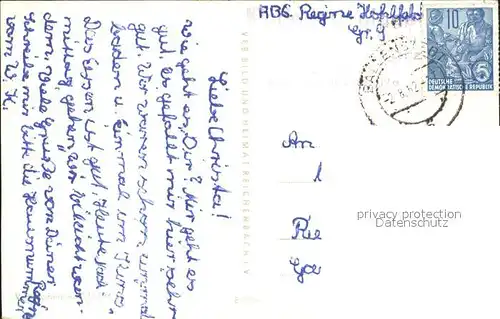 Liebe Christa!
Wie geht es Dir? Mir geht es
gut. Es gefällt mir hier sehr
gut. Wir waren schon zweimal
baden u. einmal im Kino.
Das Essen ist gut. Heute nach-
mittag gehen wir vielleicht ran-
dern. Viele Grüße von Deiner
Regin
Schreibe mir bitte die Hausnummer
vom W. H.
VEB BILD UND HEIMAT REICHENBACH I. V.
ABS. Regine
Gr. 9
10
DEUTSCHE
DEMOKRATISCHE REPUBLIK
An
1
Rie
Ge
privacy protection
Datenschutz